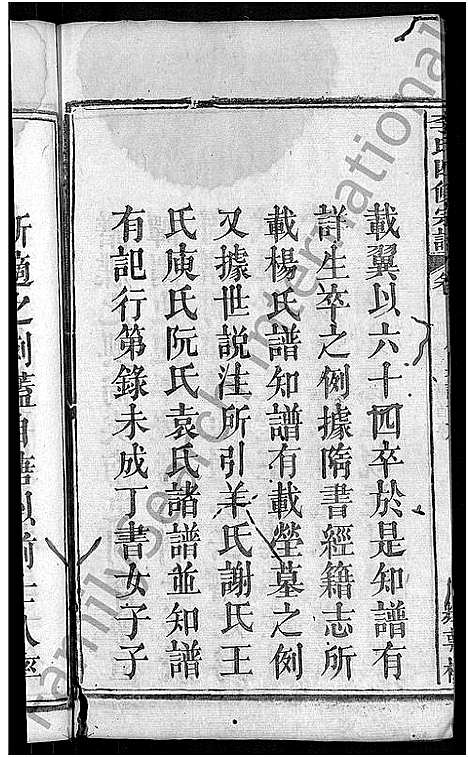 李氏四修宗譜
載翼以六十四卒於是知譜有
詳生卒之例據隋書經籍志所
載楊氏譜知譜有載塋墓之例
又據世說注所引羊氏謝氏王
氏庾氏阮氏袁氏諸譜並知譜
有記行第錄未成丁書女子子
所適之例蓋自
Family Search International